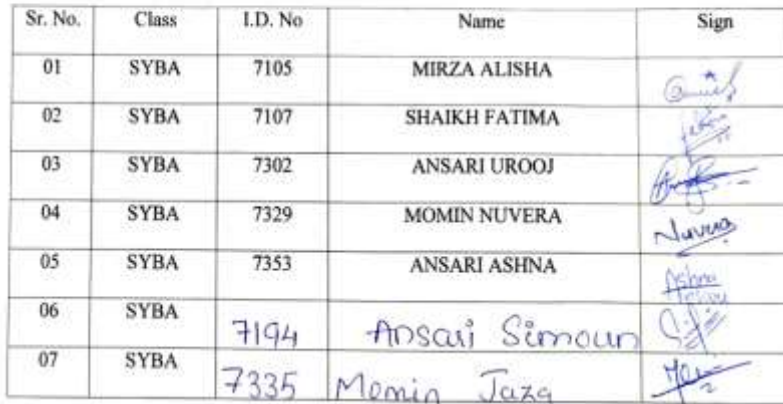 Sr. No. Class I.D. No Name Sign
01 SYBA 7105 MIRZA ALISHA
02 SYBA 7107 SHAIKH FATIMA
03 SYBA 7302 ANSARI UROOJ
04 SYBA 7329 MOMIN NUVERA Nuvera
05 SYBA 7353 ANSARI ASHNA Ashna
06 SYBA 7194 Ansari Simoun
07 SYBA 7335 Momin Jaza